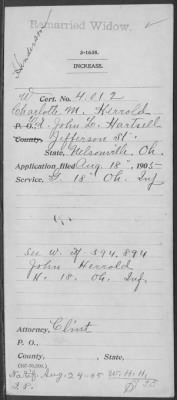 Remarried Widow.
Henderson
3-1638.
INCREASE.
W Cert. No. 4.012
Charlotte M. Herrold
P. O., Wd. John L. Hartsell
County, Jefferson St.
State, Nelsonville, Oh.
Application filed Aug. 18", 1905
Service, G. 18" Oh. Inf
See W. Of 594.894
John Herrold
H. 18. Oh. Inf.
Attorney, Clint
P. O.,
County, , State,
Notif. Aug. 24-05 W.H.H.